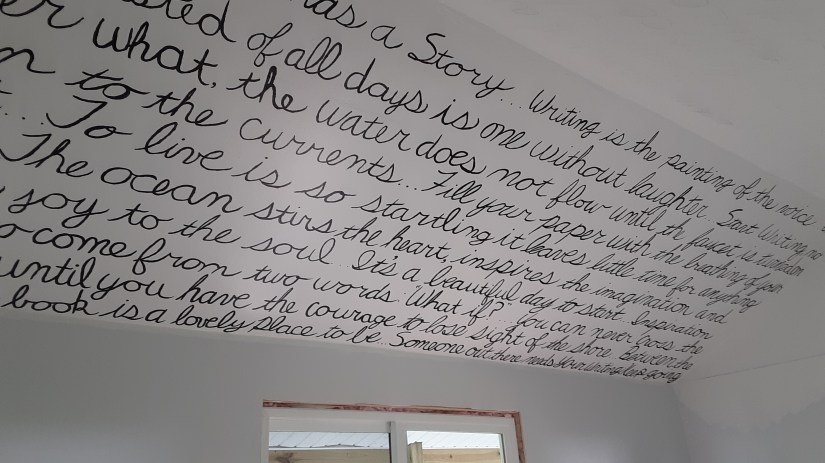 has a Story... Writing is the painting of the voice
of all days is one without laughter. Start Writing, no
er what, the water does not flow until the faucet is turned on
n to the currents... Fill your paper with the breathing of your
... To live is so startling it leaves little time for anything
The ocean stirs the heart, inspires the imagination and
joy to the soul. It's a beautiful day to start... Inspiration
o come from two words: What if?... You can never cross the
until you have the courage to lose sight of the shore. Between the
book is a lovely place to be... Someone out there needs your writing